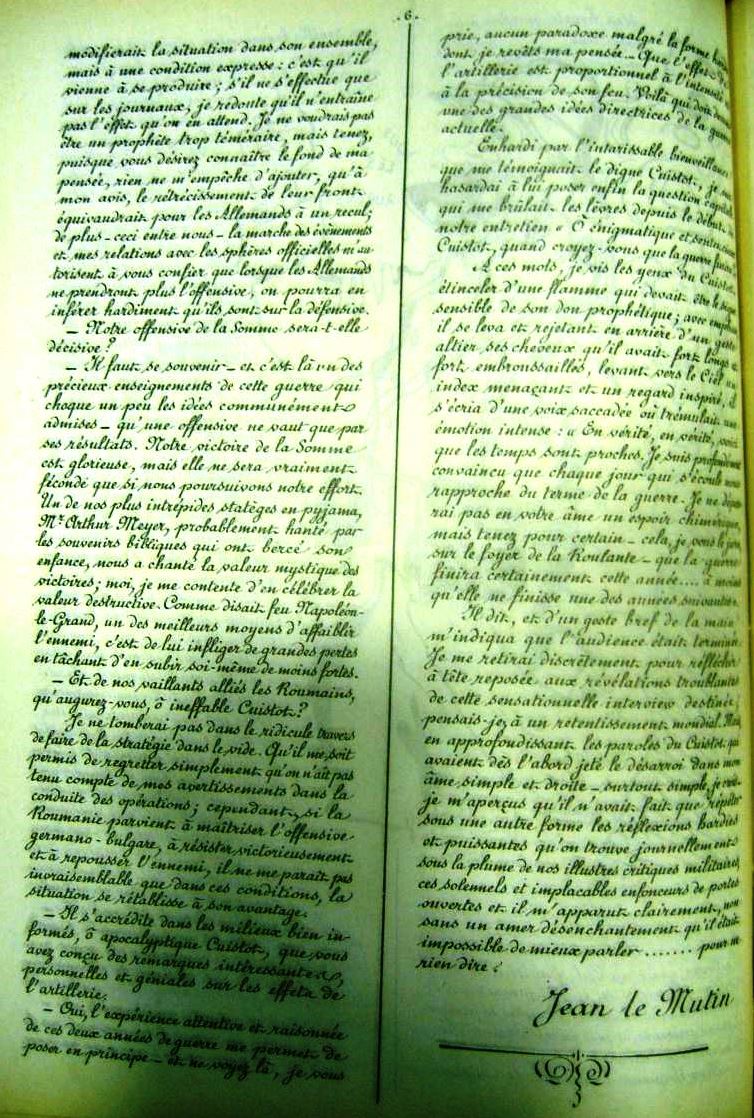 - 6 -
modifierait la situation dans son ensemble,
mais à une condition expresse : c'est qu'il
vienne à se produire ; s'il ne s'effectue que
sur les journaux, je redoute qu'il n'entraîne
pas l'effet qu'on en attend. Je ne voudrais pas
être un prophète trop téméraire, mais tenez,
puisque vous désirez connaître le fond de ma
pensée, rien ne m'empêche d'ajouter, qu'à
mon avis, le rétrécissement de leur front
équivaudrait pour les Allemands à un recul ;
de plus - ceci entre nous - la marche des événements
et mes relations avec les sphères officielles m'au-
torisent à vous confier que lorsque les Allemands
ne prendront plus l'offensive, on pourra en
inférer hardiment qu'ils sont sur la défensive.
- Notre offensive de la Somme sera-t-elle
décisive ?
- Il faut se souvenir - et c'est là un des
précieux enseignements de cette guerre qui
choque un peu les idées communément
admises - qu'une offensive ne vaut que par
ses résultats. Notre victoire de la Somme
est glorieuse, mais elle ne sera vraiment
féconde que si nous poursuivons notre effort.
Un de nos plus intrépides statèges en pyjama,
Mr Arthur Meyer, probablement hanté par
les souvenirs bibliques qui ont bercé son
enfance, nous a chanté la valeur mystique des
victoires ; moi, je me contente d'en célébrer la
valeur destructive. Comme disait feu Napoléon-
le-Grand, un des meilleurs moyens d'affaiblir
l'ennemi, c'est de lui infliger de grandes pertes
en tâchant d'en subir soi-même de moins fortes.
- Et de nos vaillants alliés les Roumains,
qu'augurez-vous, ô ineffable Cuistot ?
Je ne tomberai pas dans le ridicule travers
de faire de la stratégie dans le vide. Qu'il me soit
permis de regretter simplement qu'on n'ait pas
tenu compte de mes avertissements dans la
conduite des opérations ; cependant, si la
Roumanie parvient à maîtriser l'offensive
germano-bulgare, à résister victorieusement
et à repousser l'ennemi, il ne me paraît pas
invraisemblable que dans ces conditions, la
situation se rétablisse à son avantage.
- Il s'accrédite dans les milieux bien in-
formés, ô apocalyptique Cuistot, que vous
avez conçu des remarques intéressantes,
personnelles et géniales sur les effets de
l'artillerie.
- Oui, l'expérience attentive et raisonnée
de ces deux années de guerre me permet de
poser en principe - et ne voyez là, je vous
prie, aucun paradoxe malgré la forme
dont je revêts ma pensée... Que l'effet
l'artillerie est proportionnel à l'intensité
à la précision de son feu. Voilà qui doit
une des grandes idées directrices de la guerre
actuelle.
Enhardi par l'intarissable bienveillance
que me témoignait le digne Cuistot, je
hasardai à lui poser enfin la question capitale
qui me brûlait les lèvres depuis le début
notre entretien « Ô énigmatique et sentencieux
Cuistot, quand croyez-vous que la guerre finira
A ces mots, je vis les yeux du Cuistot
étinceler d'une flamme qui devait être le signe
sensible de son don prophétique ; avec
il se leva et rejetant en arrière d'un geste
altier ses cheveux qu'il avait fort longs et
fort embroussaillés, levant vers le Ciel un
index menaçant et un regard inspiré, il
s'écria d'une voix saccadée où trémulait une
émotion intense : « En vérité, en vérité,
que les temps sont proches. Je suis profondément
convaincu que chaque jour qui s'écoule nous
rapproche du terme de la guerre. Je ne
rai pas en votre âme un espoir chimérique,
mais tenez pour certain - cela, je vous le jure
sur le foyer de la Roulante - que la guerre
finira certainement cette année.... à moins
qu'elle ne finisse une des années suivantes.
Il dit, et d'un geste bref de la main
m'indiqua que l'audience était terminée.
Je me retirai discrètement pour réfléchir
à tête reposée aux révélations troublantes
de cette sensationnelle interview destinée,
pensais-je, à un retentissement mondial. Mais
en approfondissant les paroles du Cuistot qui
avaient dès l'abord jeté le désarroi dans mon
âme simple et droite - surtout simple, je crois -
je m'aperçus qu'il n'avait fait que répéter
sous une autre forme les réflexions hardies
et puissantes qu'on trouve journellement
sous la plume de nos illustres critiques militaires,
ces solennels et implacables enfonceurs de portes
ouvertes et il m'apparut clairement, non
sans un amer désenchantement qu'il était
impossible de mieux parler ....... pour ne
rien dire !
Jean le Mutin